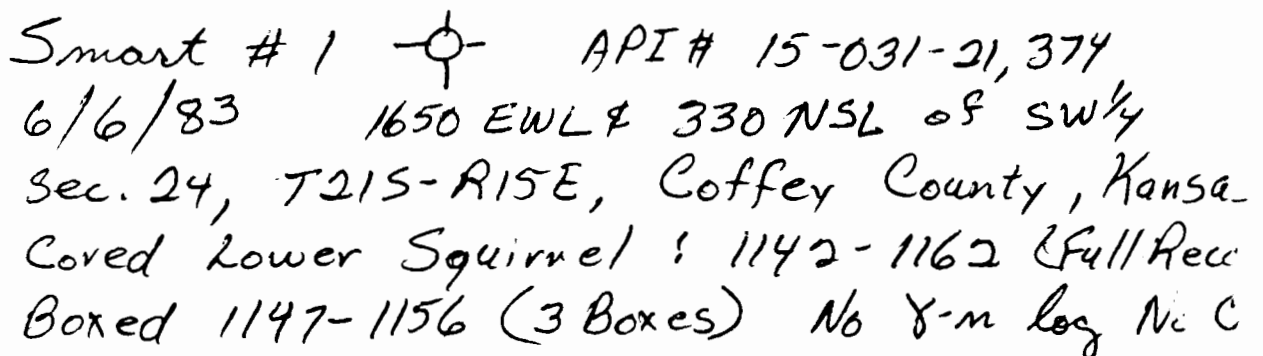 Smart # 1 API # 15-031-21,374
6/6/83 1650 EWL & 330 NSL of SW 1/4
Sec. 24, T21S-R15E, Coffey County, Kansa
Cored Lower Squirrel : 1142-1162 (Full Rec
Boxed 1147-1156 (3 Boxes) No γ-n log No C